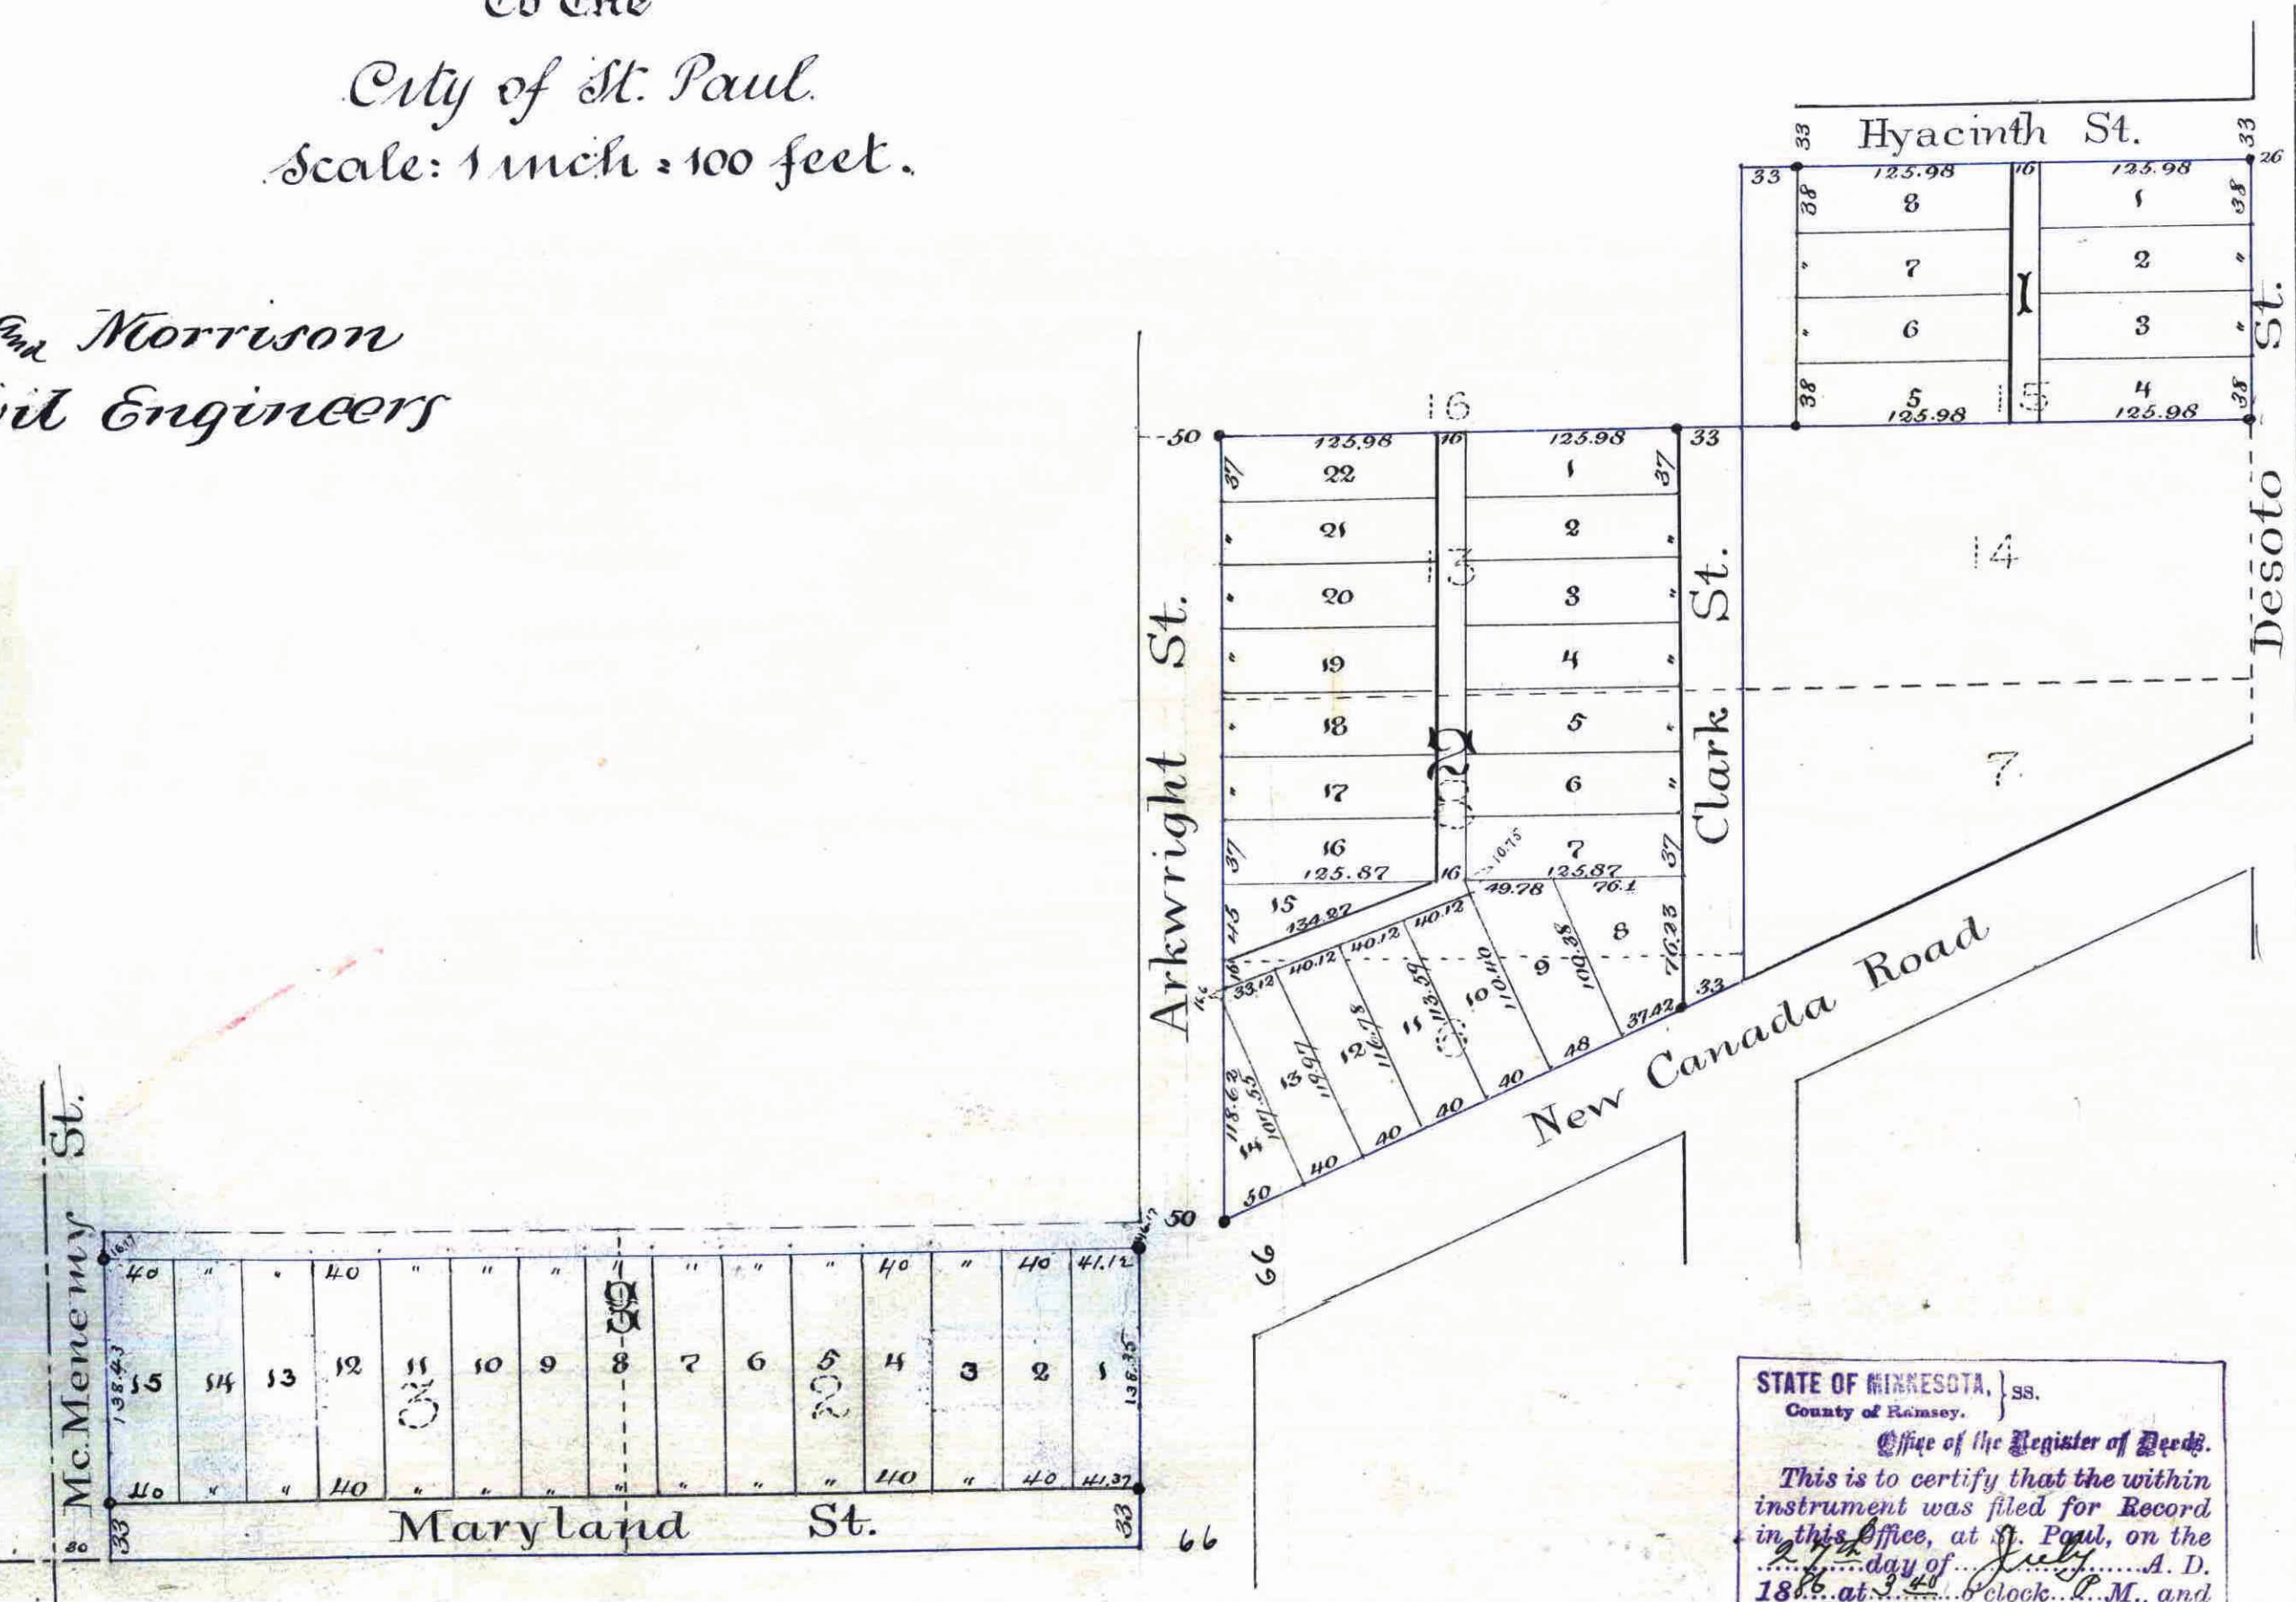 to the
City of St. Paul.
Scale: 1 inch = 100 feet.
and Morrison
Civil Engineers
Hyacinth St.
33
33
26
33
125.98 16 125.98
38 8 1 38
" 7 2 "
I
" 6 3 "
38 5 15 4 38
125.98 125.98
Desoto St.
16
50
125.98 16 125.98 33
37 22 1 37
" 21 2 "
13
" 20 3 "
" 19 4 "
" 18 5 "
2
" 17 6 "
37 16 7 37
10.75
125.87 16 125.87
49.78 76.1
45 15 134.27
16
16.6
33.12 40.12 40.12 40.12
14 13 12 11 10 9 8
118.62 107.55 119.97 116.78 113.59 110.40 109.38 76.23
50 40 40 40 40 48 37.42 33
14
7
Arkwright St.
Clark St.
New Canada Road
50
66
Mc.Menemy St.
16.17 16.17
40 " " 40 " " " " " " " 40 " 40 41.12
3
138.43 15 14 13 12 11 10 9 8 7 6 5 4 3 2 1 138.35
40 " " 40 " " " " " " " 40 " 40 41.37
33 Maryland St. 33
30
66
STATE OF MINNESOTA, } ss.
County of Ramsey.
Office of the Register of Deeds.
This is to certify that the within
instrument was filed for Record
in this Office, at St. Paul, on the
27th day of July A. D.
1886 at 3 40 o'clock P. M., and